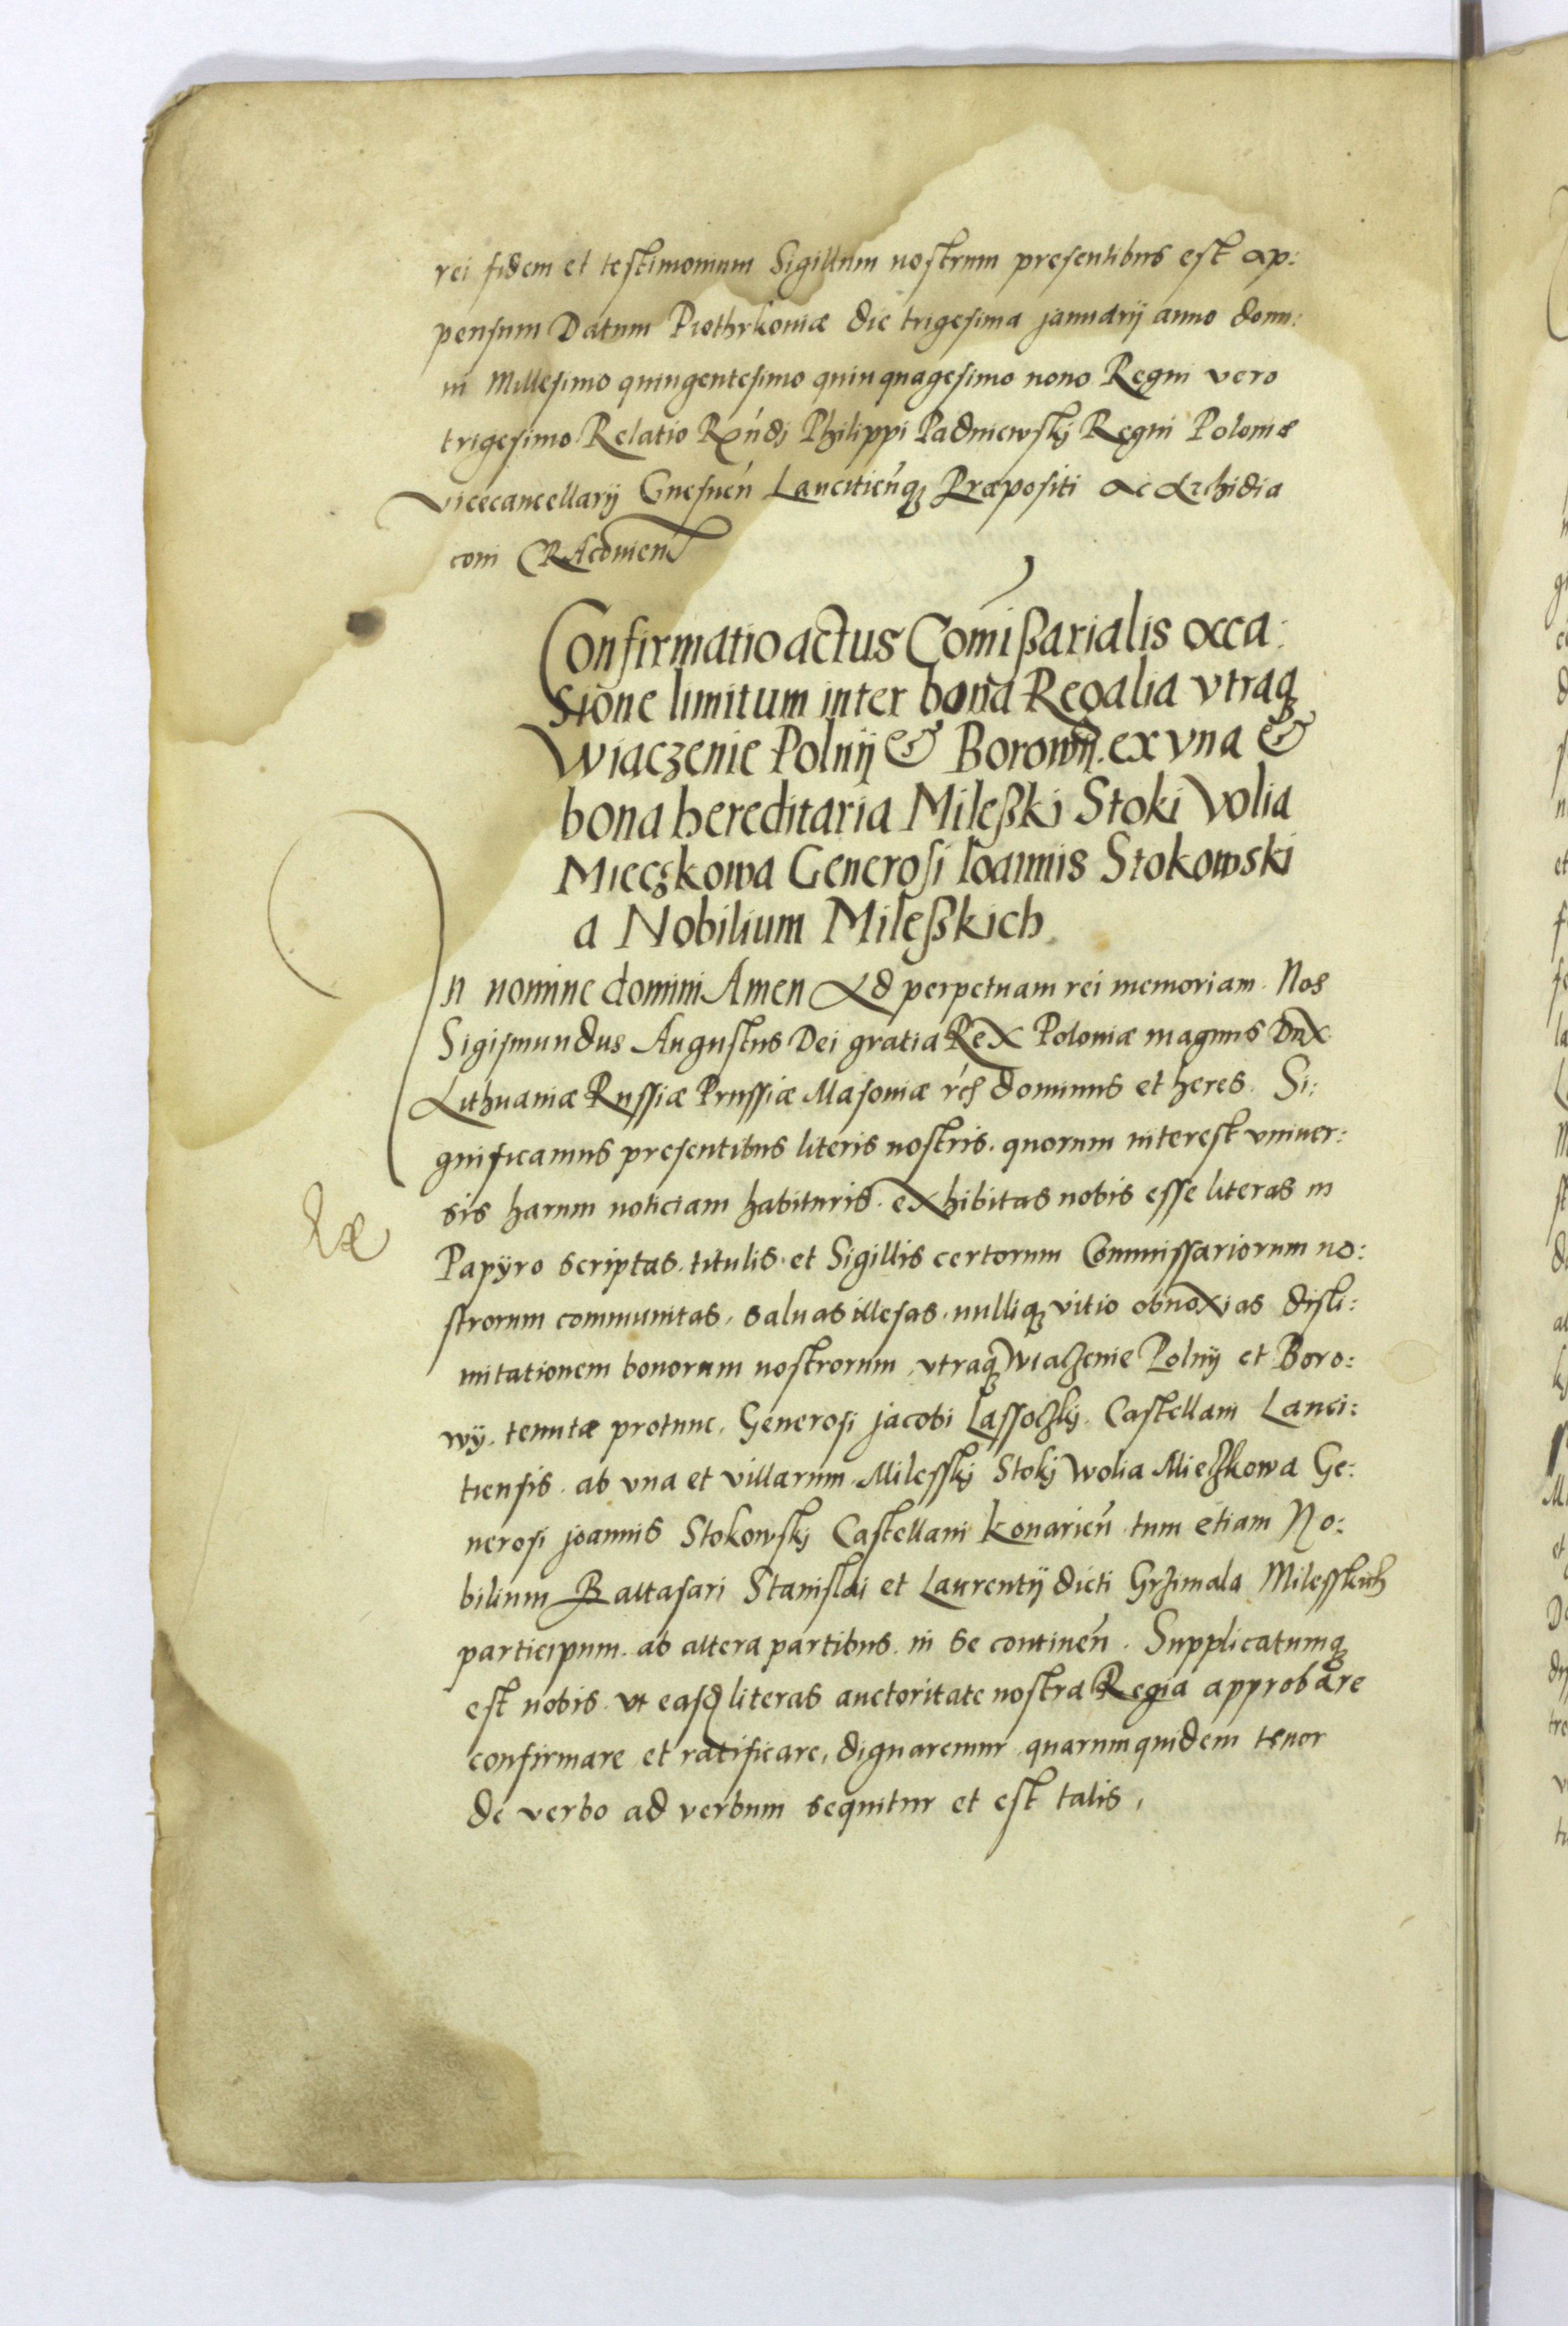 rei fidem et testimonium Sigillum nostrum presentibus est ap:
pensum Datum Piothrkoviæ die trigesima januarij anno domi:
ni Millesimo quingentesimo quinquagesimo nono Regni vero
trigesimo Relatio Rx̄ńdi Philippi Padniewskj Regni Poloniæ
vicecancellarij Gnesneń Lancitieńq₃ Præpositi ac Archidia
coni CRAcovień
Confirmatio actus Comißarialis occa:
sione limitum inter bona Regalia vtraq₃
Wiączenie Polnij & Borowij ex vna &
bona hereditaria Mileßki Stoki Volia
Mieczkowa Generosi Ioannis Stokowski
a Nobilium Mileßkich
In nomine domini Amen Ad perpetuam rei memoriam. Nos
Sigismundus Augustus Dei gratia Rex Poloniæ magnus Dux
Lithuaniæ Russiæ Prussiæ Masoviæ dominus et heres. Si:
gnificamus presentibus literis nostris. quorum interest vniver:
sis harum noticiam habituris. exhibitas nobis esse literas in
Papÿro scriptas. titulis. et Sigillis certorum Commissariorum no:
strorum communitas, salvas illesas. nulliq₃ vitio obnoxias disli:
mitationem bonorum nostrorum vtraq₃ Wiaczenie Polnij et Boro:
wÿ. tenutæ protunc. Generosi jacobi Lassoczkj. Castellani Lanci:
tiensis. ab vna et villarum. Milesskj Stokj Wolia Mieczkowa Ge:
nerosi joannis Stokowskj Castellani Konarień tum etiam No:
bilium Baltasari Stanislai et Laurentij dicti Grzimala Milesskich
participum. ab altera partibus. in se contineń. Supplicatumq₃
est nobis. vt easd literas auctoritate nostra Regia approbare
confirmare et ratificare, dignaremur quarumquidem tenor
de verbo ad verbum sequitur et est talis,